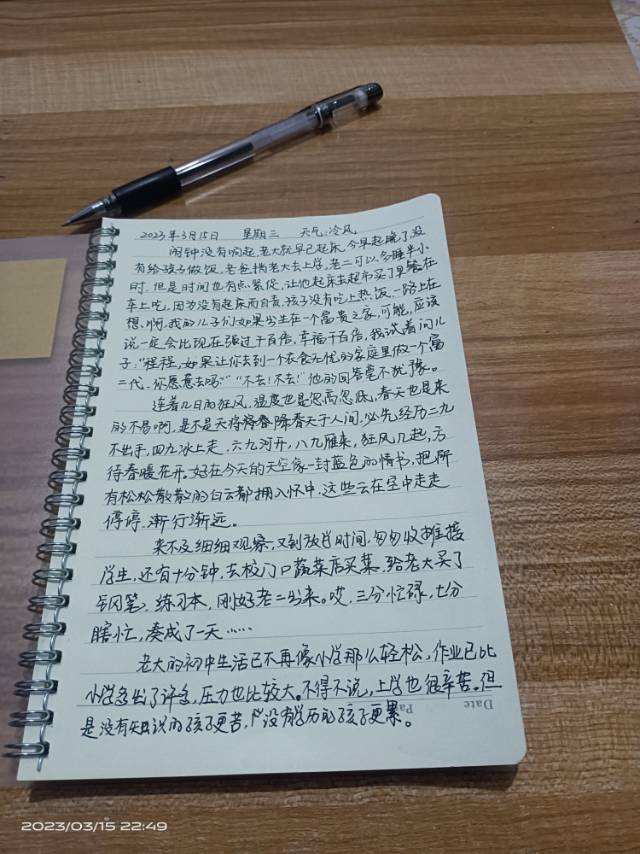 2023年3月15日 星期三 天气:冷风
闹钟没有响起老大就早已起床,今早起晚了,没
有给孩子做饭。老爸捎老大去上学,老二可以多睡半小
时,但是时间也有点紧促,让他起床去超市买了早餐在
车上吃,因为没有起床而自责,孩子没有吃上热饭。一路上在
想,啊,我的儿子们如果出生在一个富贵之家,可能,应该
说一定会比现在强过千百倍,幸福千百倍,我试着问儿
子:“程程,如果让你去到一个衣食无忧的家庭里做一个富
二代,你愿意去吗?”“不去!不去!”他的回答毫不犹豫。
连着几日的狂风,温度也是忽高忽低,春天也是来
的不易啊,是不是天将降春天于人间,必先经历二九
不出手,四九冰上走,六九河开,八九雁来,狂风几起,方
待春暖花开。好在今天的天空像一封蓝色的情书,把所
有松松散散的白云都拥入怀中,这些云在空中走走
停停,渐行渐远。
来不及细细观察,又到放学时间,匆匆收摊接
学生,还有十分钟,去校门口蔬菜店买菜,给老大买了
钢笔,练习本,刚好老二出来。哎,三分忙碌,七分
瞎忙,凑成了一天……
老大的初中生活已不再像小学那么轻松,作业已比
小学多出了许多,压力也比较大。不得不说,上学也很辛苦。但
是没有知识的孩子更苦,没有学历的孩子更累。
Date
Pa
2023/03/15 22:49